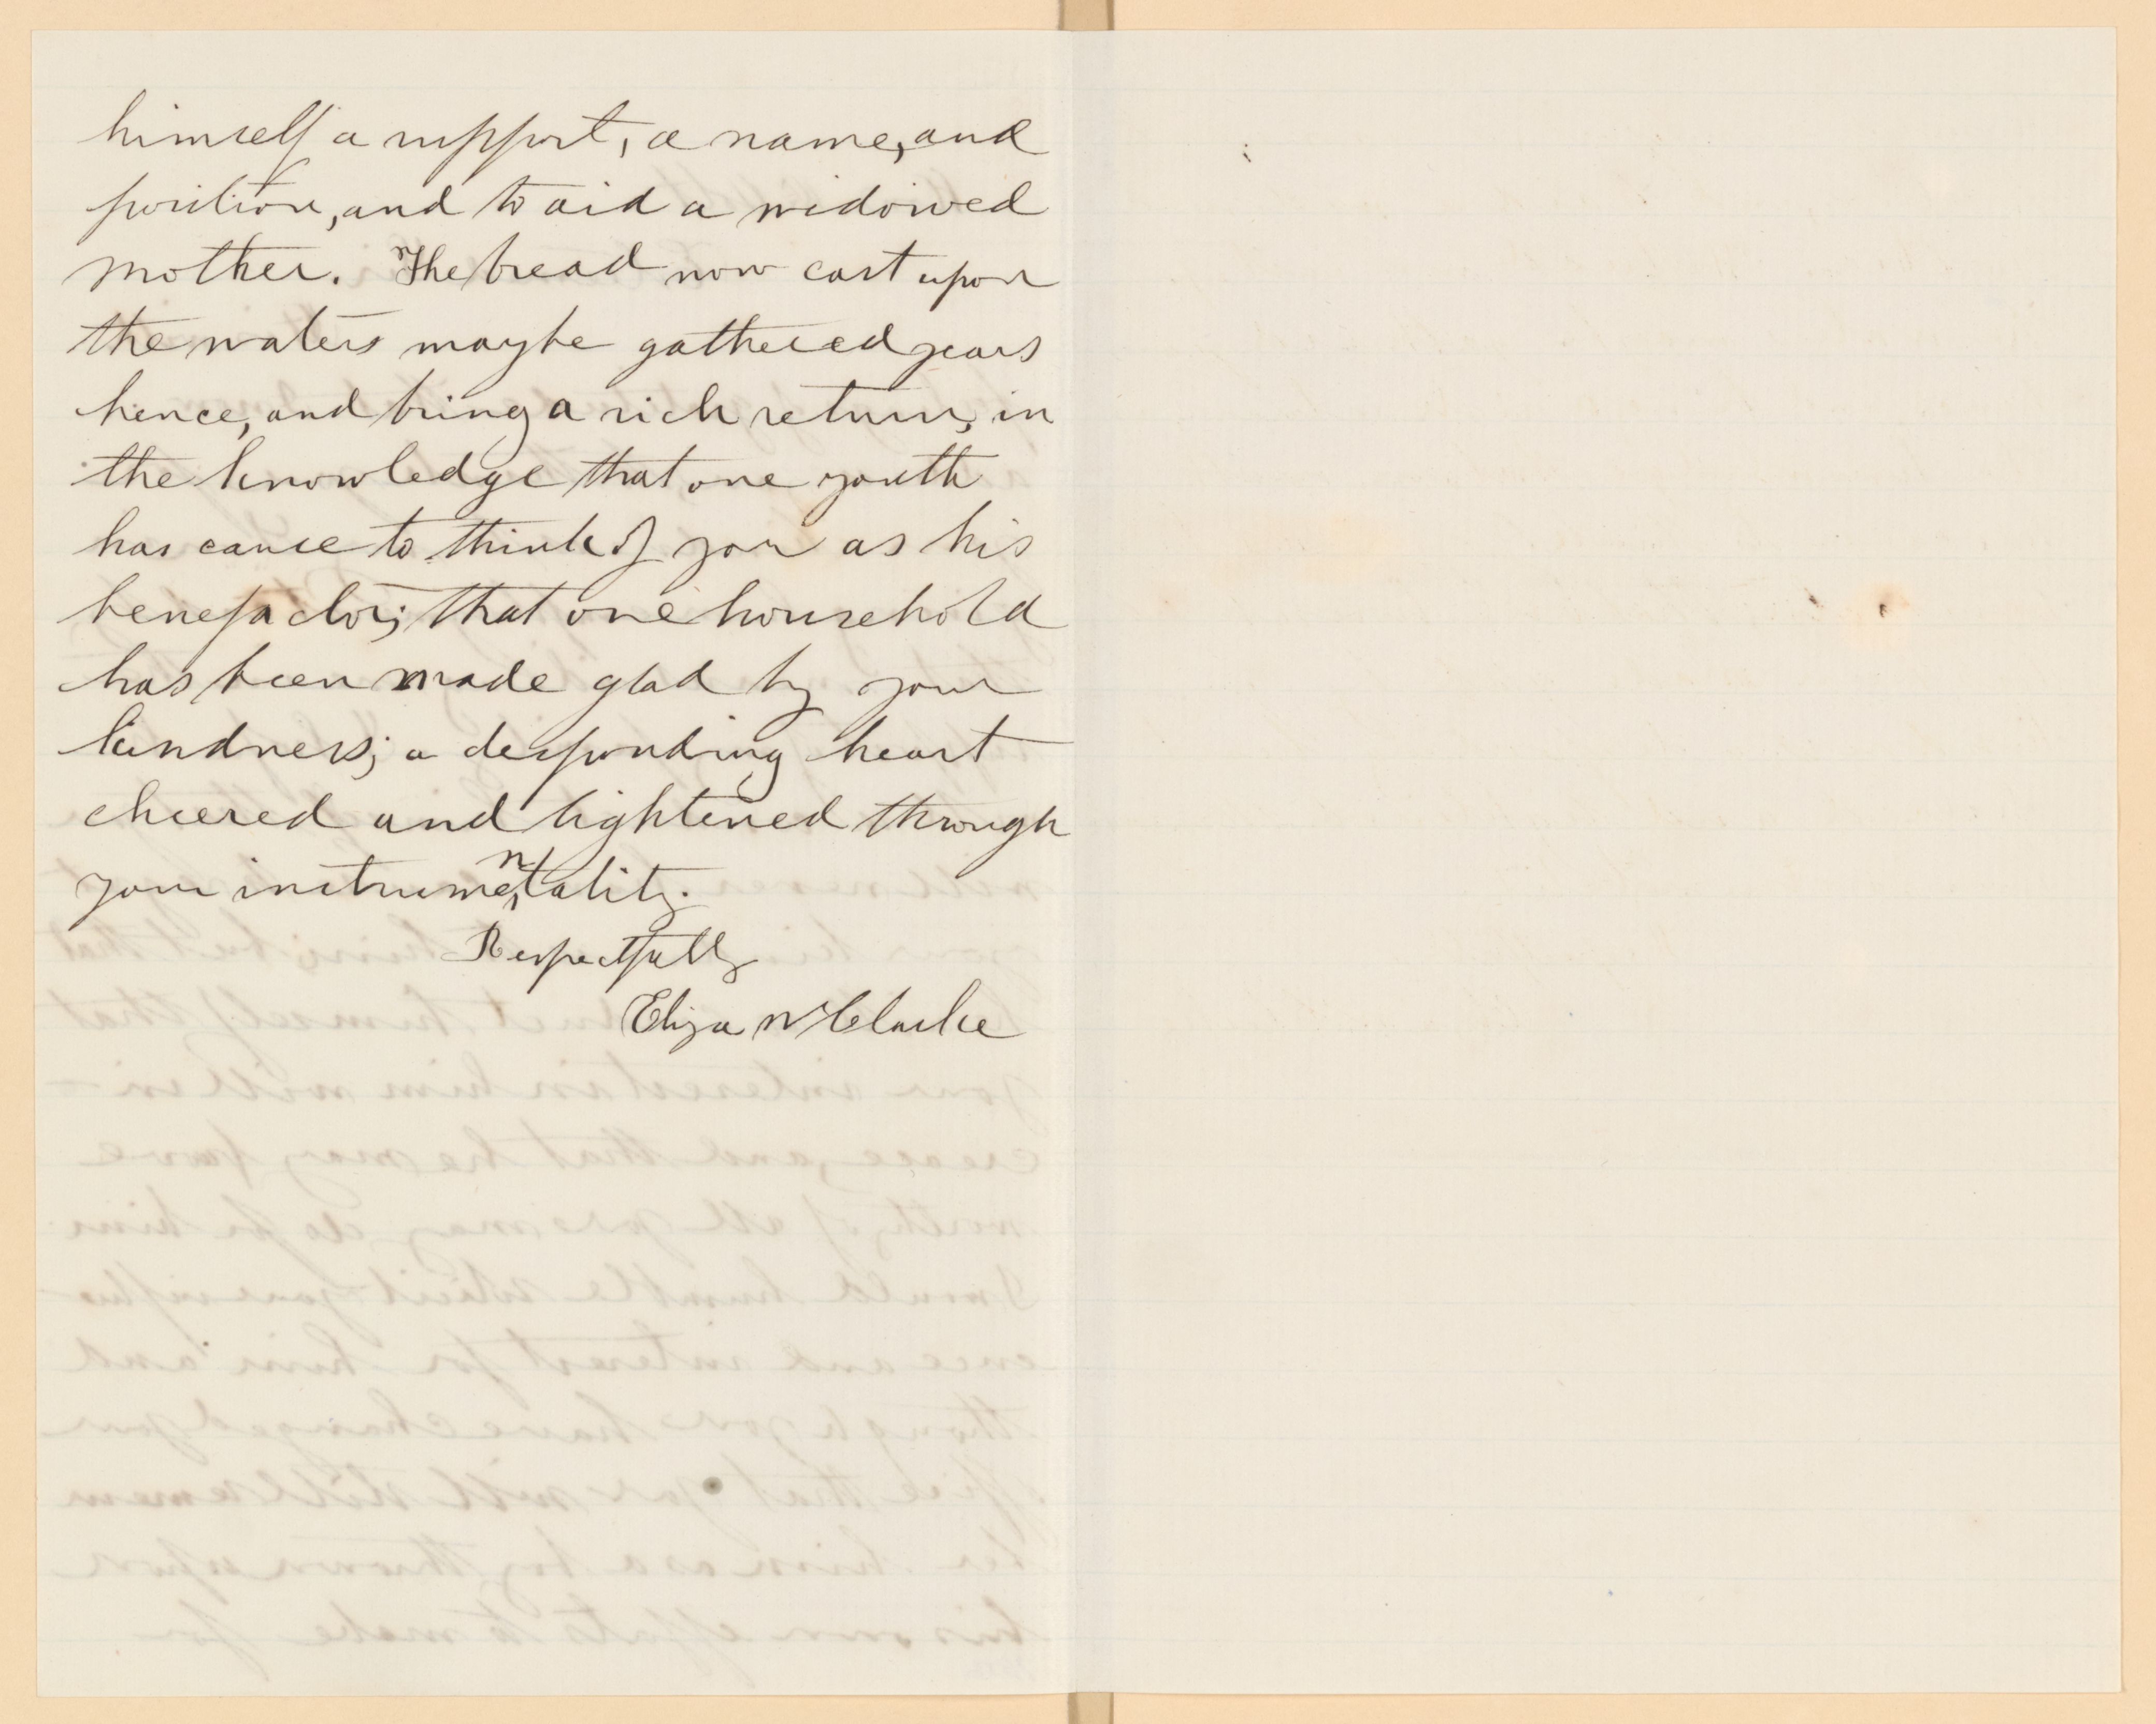 himself a support, a name, and
position, and to aid a widowed
mother. The bread now cast upon
the waters may be gathered years
hence, and bring a rich return, in
the knowledge that one youth
has cause to think of you as his
benefactor; that one household
has been made glad by your
kindness; a desponding heart
cheered and lightened through
your instrumentality.
Respectfully
Eliza W Clarke